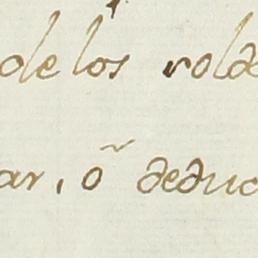 de los rolde
ar, õ deduc